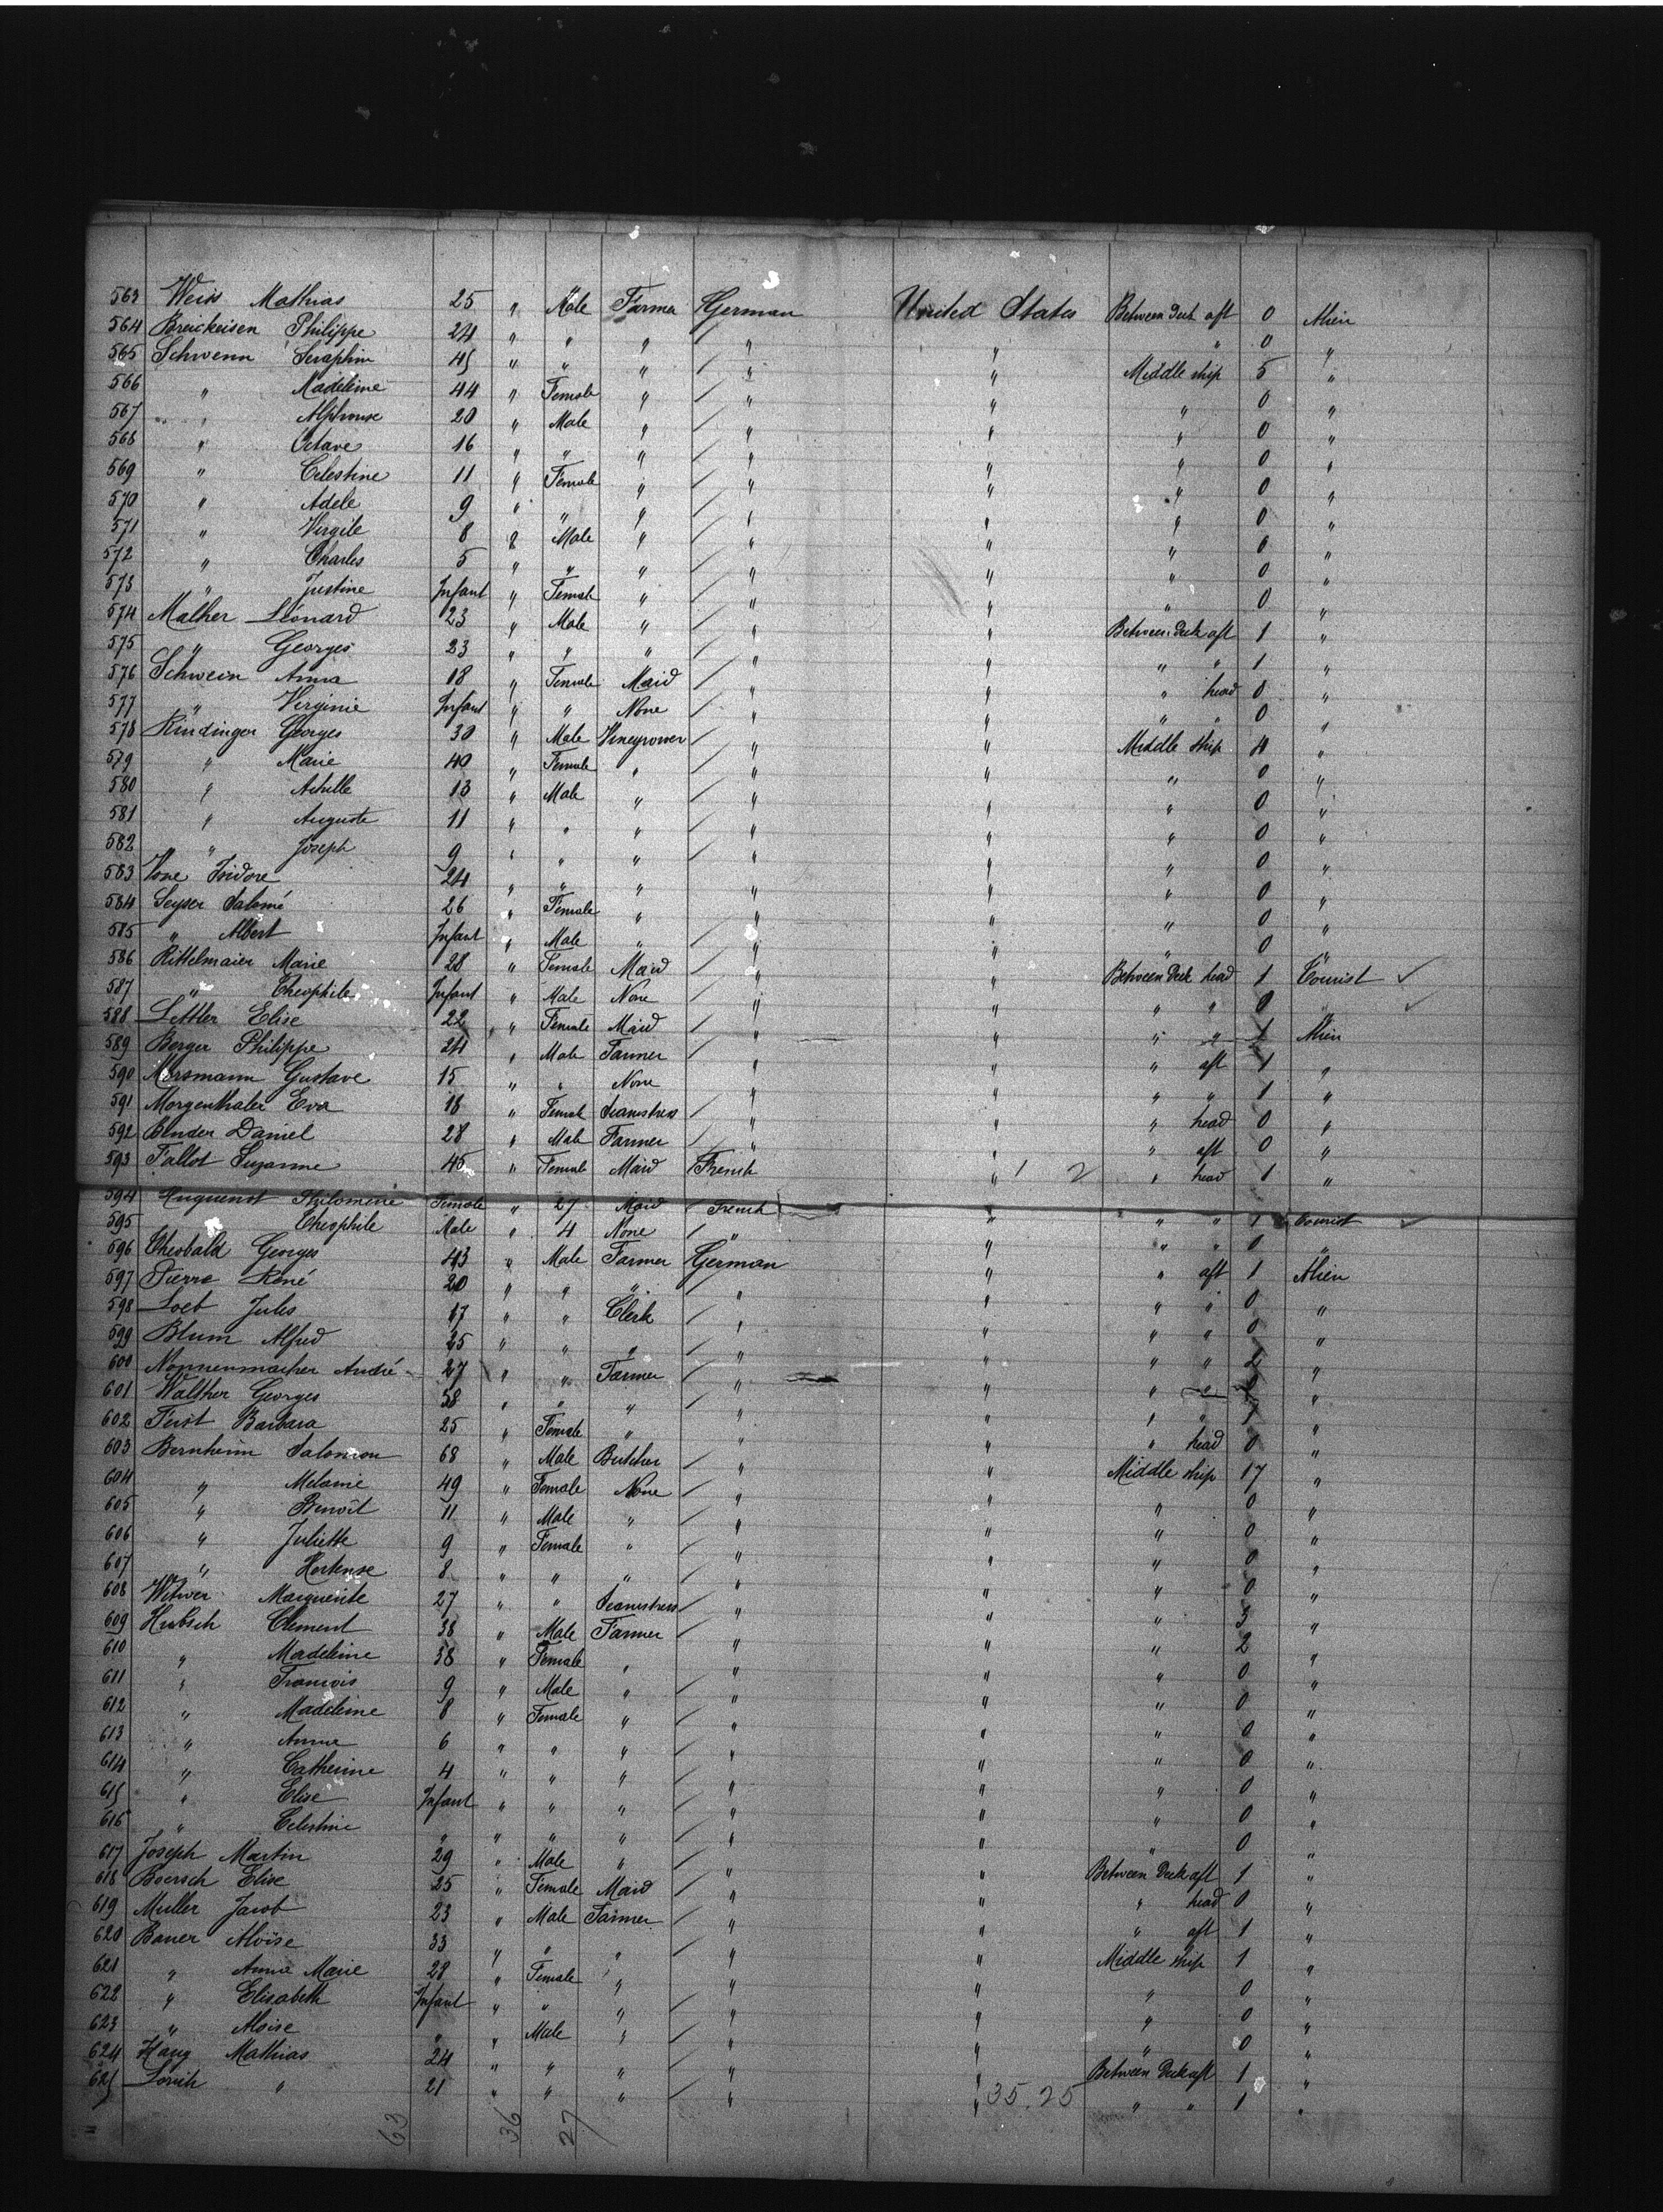 563 Weiss Mathias 25 " Male Farmer German United States Between Deck aft 0 Alien
564 Breickeisen Philippe 24 " " " " " " 0 "
565 Schwenn Seraphin 45 " " " " " Middle ship 5 "
566 " Madeleine 44 " Female " " " " 0 "
567 " Alphonse 20 " Male " " " " 0 "
568 " Octave 16 " " " " " " 0 "
569 " Celestine 11 " Female " " " " 0 "
570 " Adele 9 " " " " " " 0 "
571 " Virgile 8 " Male " " " " 0 "
572 " Charles 5 " " " " " " 0 "
573 " Justine Infant " Female " " " " 0 "
574 Malher Léonard 23 " Male " " " Between Deck aft 1 "
575 " Georges 23 " " " " " " " 1 "
576 Schwein Anna 18 " Female Maid " " " head 0 "
577 " Virginie Infant " " None " " " " 0 "
578 Rindinger Georges 30 " Male Vinegrower " " Middle ship 4 "
579 " Marie 40 " Female " " " " 0 "
580 " Achille 13 " Male " " " " 0 "
581 " Auguste 11 " " " " " " 0 "
582 " Joseph 9 " " " " " " 0 "
583 Isidore 24 " " " " " " 0 "
584 Seyser Salomé 26 " Female " " " " 0 "
585 " Albert Infant " Male " " " " 0 "
586 Rittelmaier Marie 28 " Female Maid " " Between Deck head 1 Tourist
587 " Theophile Infant " Male None " " " " 0 "
588 Settler Elise 22 " Female Maid " " " " 1 Alien
589 Berger Philippe 24 " Male Farmer " " " aft 1 "
590 Morsmann Gustave 15 " " None " " " " 1 "
591 Morgenthaler Eva 18 " Female Seamstress " " " head 0 "
592 Binder Daniel 28 " Male Farmer " " " aft 0 "
593 Fallot Suzanne 45 " Female Maid French " 1 2 " head 1 "
594 Huguenot Philomene Female " 27 Maid French " " " 1 Tourist
595 Theophile Male " 4 None " " " " 0 "
596 Theobald Georges 43 " Male Farmer German " " aft 1 Alien
597 Pierre René 20 " " " " " " " 0 "
598 Loeb Jules 17 " " Clerk " " " " 0 "
599 Blum Alfred 25 " " " " " " " 2 "
600 Nonnenmacher André 27 " " Farmer " " " " "
601 Walther Georges 58 " " " " " " " 1 "
602 Ferst Barbara 25 " Female " " " " head 0 "
603 Bernheim Salomon 68 " Male Butcher " " Middle ship 17 "
604 " Melanie 49 " Female None " " " 0 "
605 " Benoît 11 " Male " " " " 0 "
606 " Juliette 9 " Female " " " " 0 "
607 " Hortense 8 " " " " " " 0 "
608 Witwer Marguerite 27 " " Seamstress " " " 3 "
609 Hubsch Clement 38 " Male Farmer " " " 2 "
610 " Madeleine 38 " Female " " " " 0 "
611 " Francois 9 " Male " " " " 0 "
612 " Madeleine 8 " Female " " " " 0 "
613 " Anna 6 " " " " " " 0 "
614 " Catherine 4 " " " " " " 0 "
615 " Elise Infant " " " " " " 0 "
616 " Celestine " " " " " " " 0 "
617 Joseph Martin 29 " Male " " " Between Deck aft 1 "
618 Boersch Elise 25 " Female Maid " " " head 0 "
619 Muller Jacob 23 " Male Farmer " " " aft 1 "
620 Bauer Aloïse 33 " " " " " Middle ship 1 "
621 " Anna Marie 28 " Female " " " " 0 "
622 " Elisabeth Infant " " " " " " 0 "
623 " Aloise " " Male " " " " 0 "
624 Haug Mathias 24 " " " " " Between Deck aft 1 "
625 Lorich " 21 " " " " " 35.25 " " 1 "
63 36 27